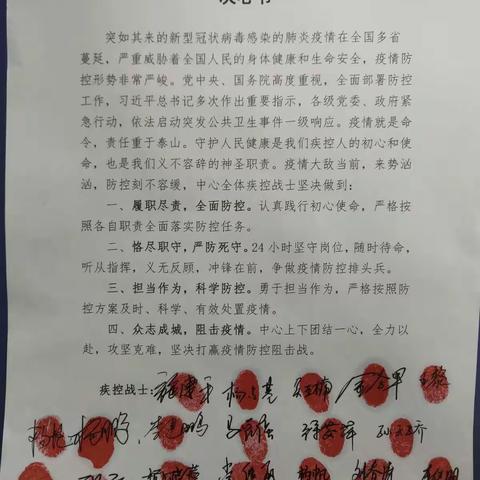 决心书
突如其来的新型冠状病毒感染的肺炎疫情在全国多省
蔓延，严重威胁着全国人民的身体健康和生命安全，疫情防
控形势非常严峻。党中央、国务院高度重视，全面部署防控
工作，习近平总书记多次作出重要指示，各级党委、政府紧
急行动，依法启动突发公共卫生事件一级响应。疫情就是命
令，责任重于泰山。守护人民健康是我们疾控人的初心和使
命，也是我们义不容辞的神圣职责。疫情大敌当前，来势汹
汹，防控刻不容缓，中心全体疾控战士坚决做到：
一、履职尽责，全面防控。认真践行初心使命，严格按
照各自职责全面落实防控任务。
二、恪尽职守，严防死守。24 小时坚守岗位，随时待命，
听从指挥，义无反顾，冲锋在前，争做疫情防控排头兵。
三、担当作为，科学防控。勇于担当作为，严格按照防
控方案及时、科学、有效处置疫情。
四、众志成城，阻击疫情。中心上下团结一心，全力以
赴，攻坚克难，坚决打赢疫情防控阻击战。
疾控战士：